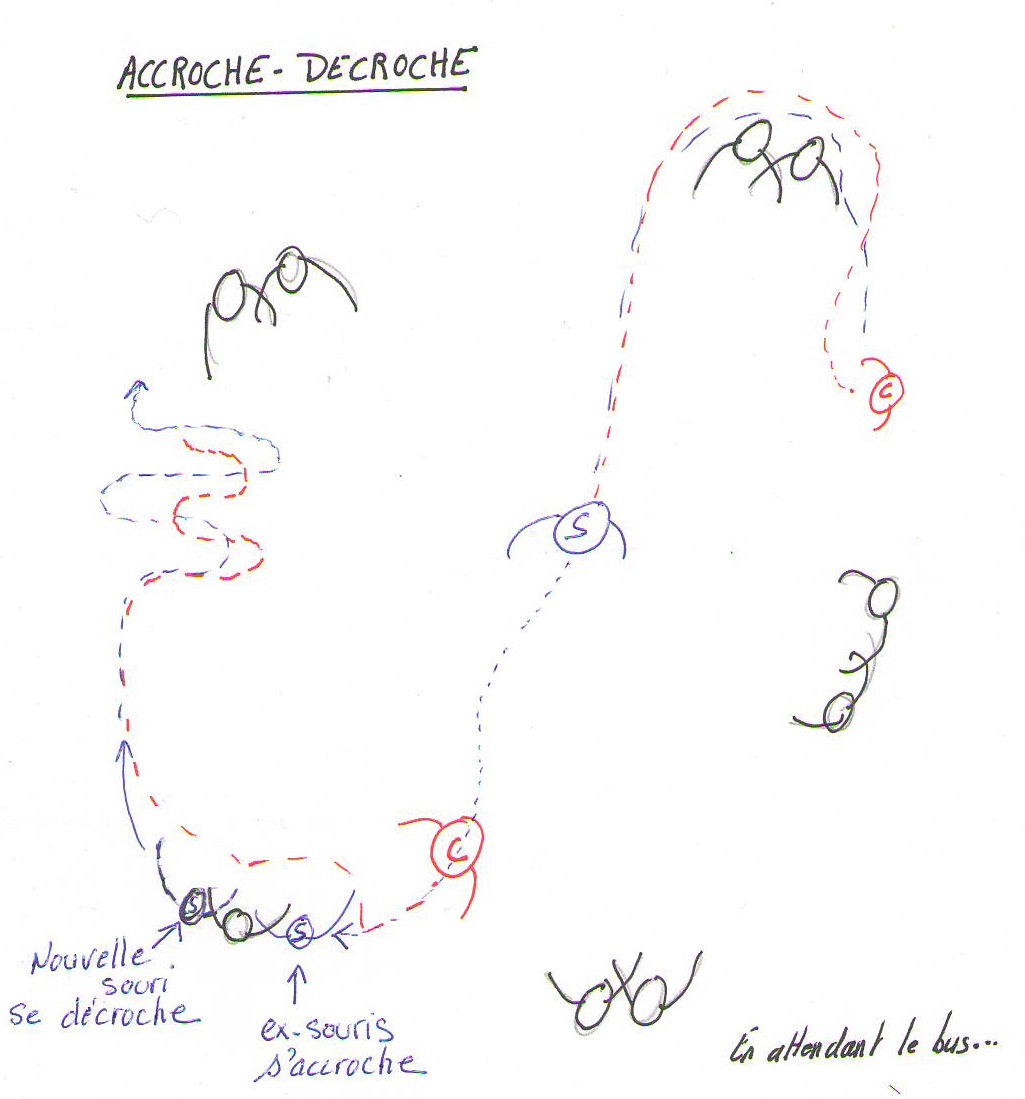 ACCROCHE - DECROCHE
C
S
C
S
S
Nouvelle
souri
se décroche
ex-souris
s'accroche
En attendant le bus...